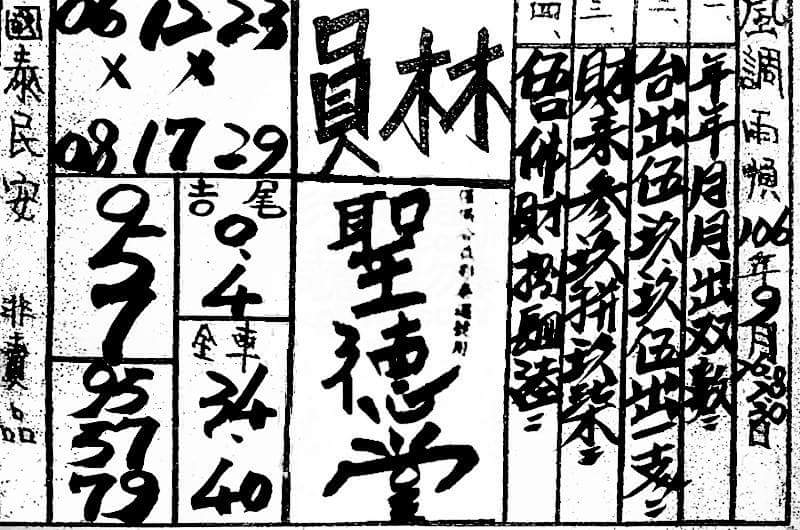 風調雨順 106年9月26.28.30日
一、年年月月出双数
二、台出伍玖.玖伍出一支
三、財来参玖拼玖柒
四、伍佛財
員林
聖德堂
06 12 23
x x
08 17 29
吉尾
0.4
全車
34.40
9
5
7
95
57
79
國泰民安 非賣品